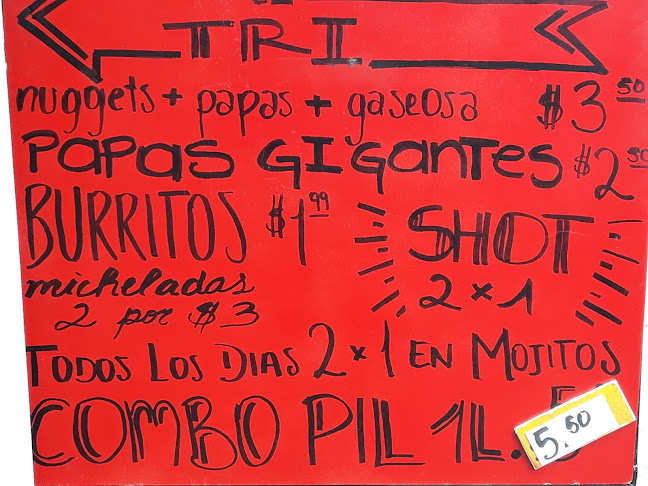 TRI
nuggets + papas + gaseosa $3.50
PAPAS GIGANTES $2.50
BURRITOS $1.99
SHOT
2x1
micheladas
2 por $3
TODOS LOS DIAS 2x1 EN MOJITOS
COMBO PILL 1L. 5.50